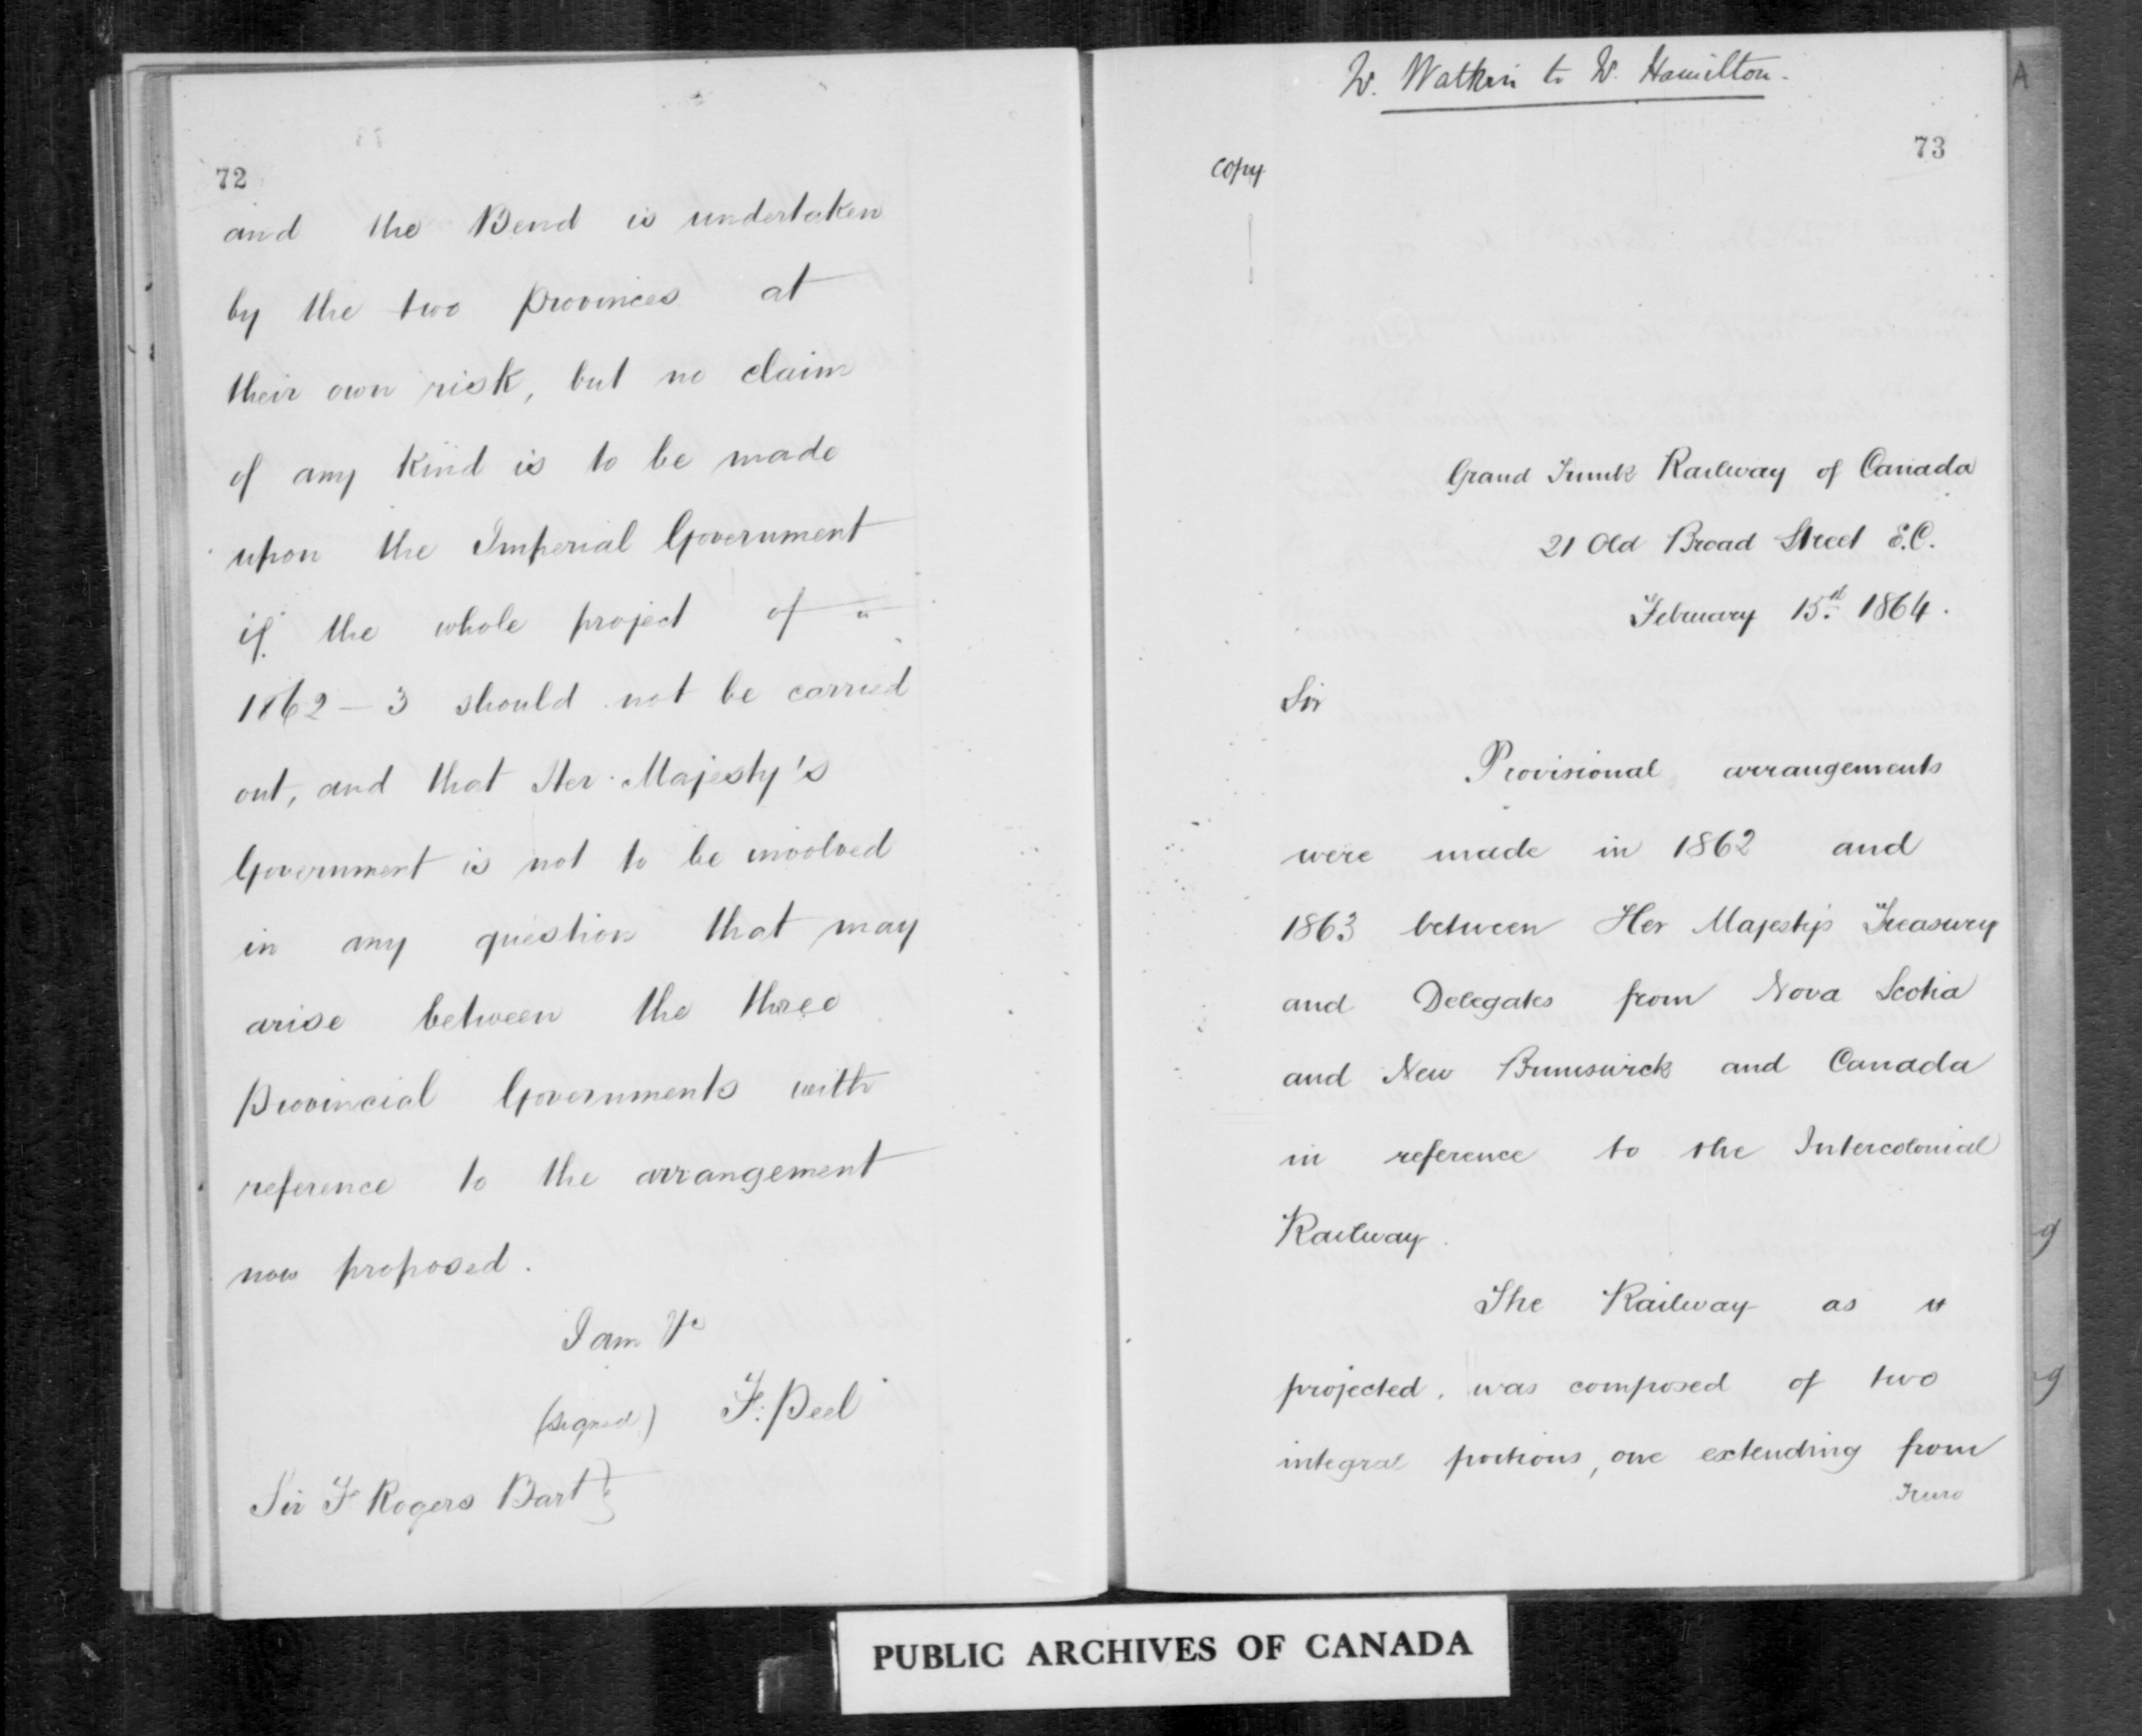 72
and the Bend is undertaken
by the two Provinces at
their own risk, but no claim
of any Kind is to be made
upon the Imperial Government
if the whole project of
1862-3 should not be carried
out, and that Her Majesty's
Government is not to be involved
in any question that may
arise between the three
Provincial Governments with
reference to the arrangement
now proposed.
I am &c
(signed) F. Peel
Sir F Rogers Bart
W. Watkin to W. Hamilton.
73
Copy
Grand Trunk Railway of Canada
21 Old Broad Street E.C.
February 15th 1864.
Sir
Provisional arrangements
were made in 1862 and
1863 between Her Majesty's Treasury
and Delegates from Nova Scotia
and New Brunswick and Canada
in reference to the Intercolonial
Railway.
The Railway as it
projected, was composed of two
integral portions, one extending from
Truro
A
g
g
PUBLIC ARCHIVES OF CANADA